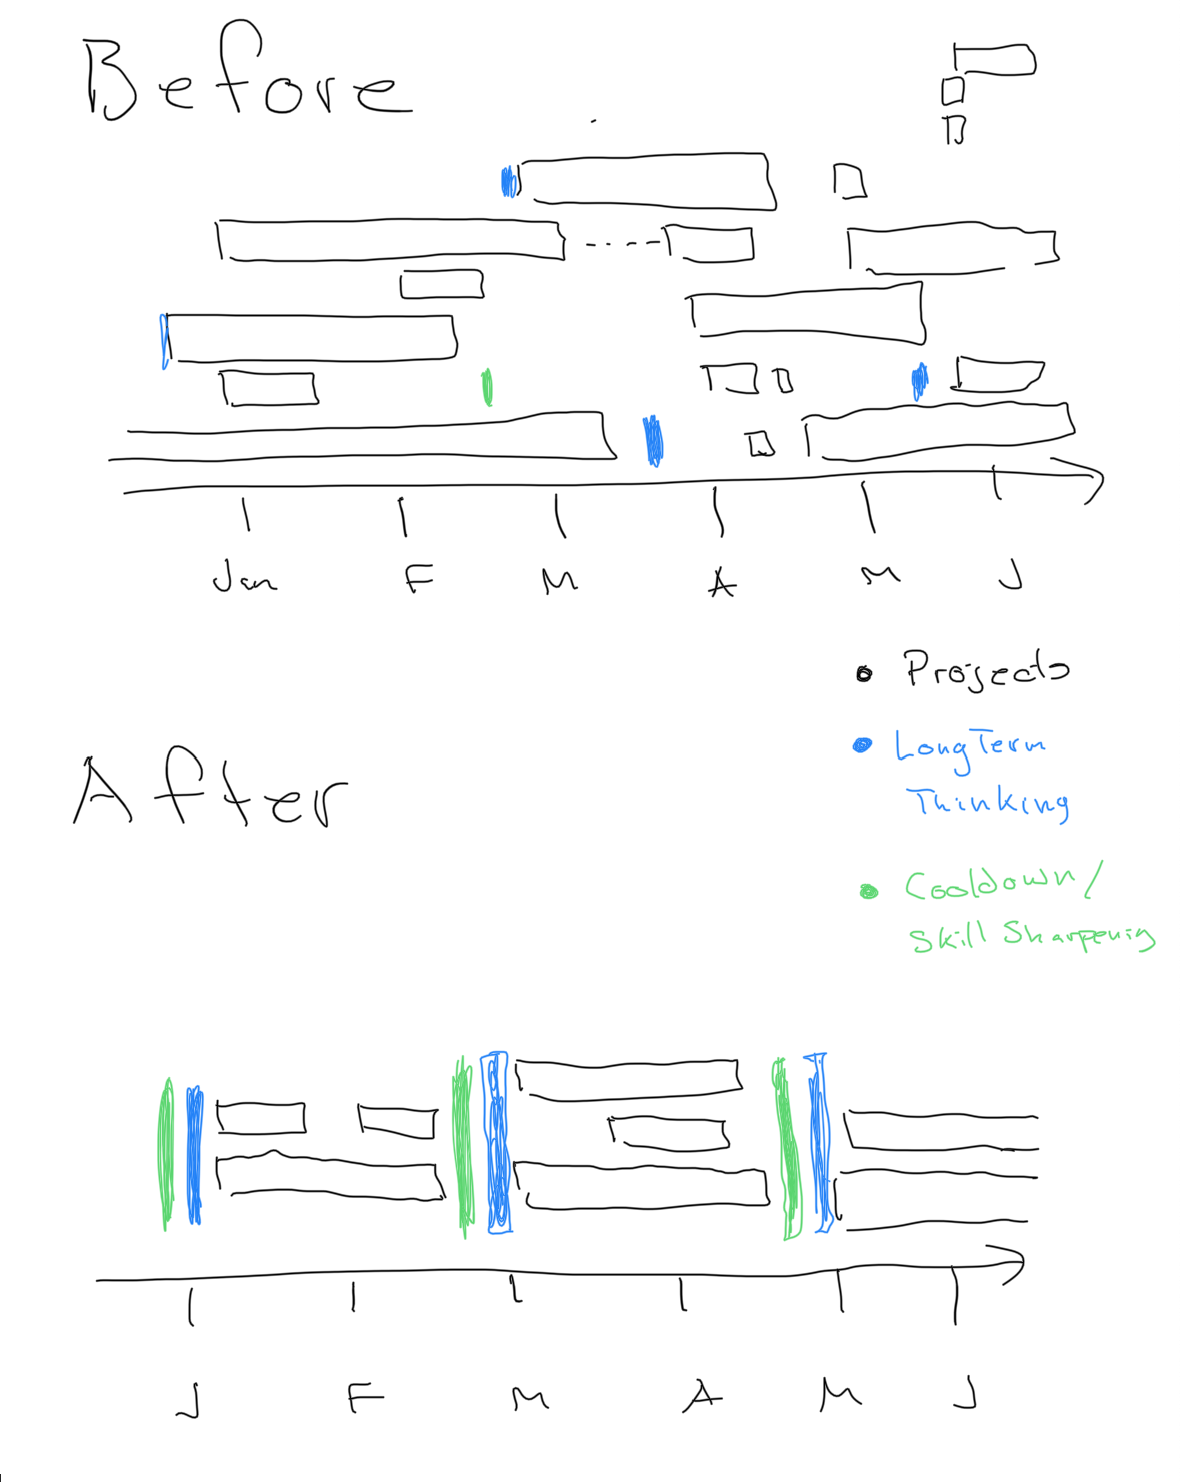 Before
Jan F M A M J
Projects
Long Term
Thinking
After
Cooldown/
Skill Sharpening
J F M A M J